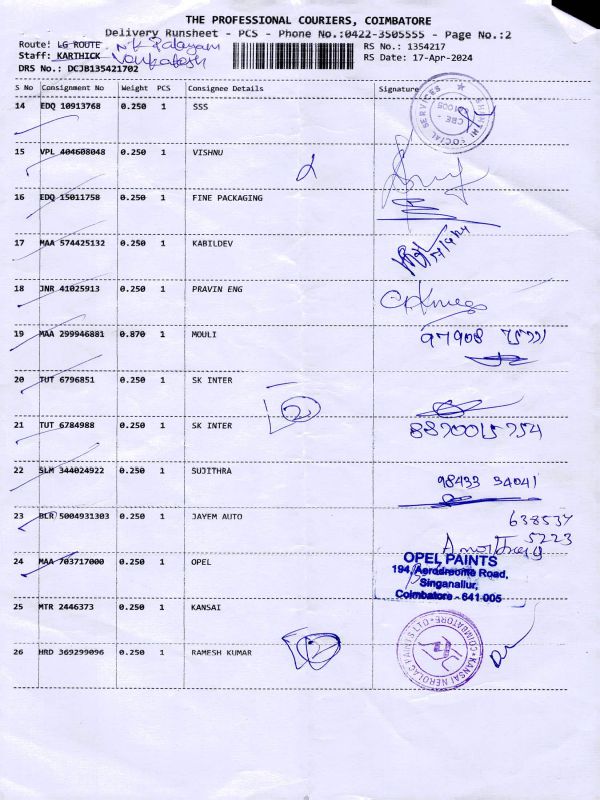 THE PROFESSIONAL COURIERS, COIMBATORE
Delivery Runsheet - PCS - Phone No.:0422-3505555 - Page No.:2
Route: LG ROUTE N.K Palayam RS No.: 1354217
Staff: KARTHICK Venkatesh RS Date: 17-Apr-2024
DRS No.: DCJB135421702
S No Consignment No Weight PCS Consignee Details Signature
14 EDQ 10913768 0.250 1 SSS
SHANTHI SOCIAL SERVICES
CBE -
15 VPL 404608048 0.250 1 VISHNU
2
16 EDQ 15011758 0.250 1 FINE PACKAGING
17 MAA 574425132 0.250 1 KABILDEV
17/4/24
18 JNR 41025913 0.250 1 PRAVIN ENG
19 MAA 299946881 0.870 1 MOULI
97908
20 TUT 6796851 0.250 1 SK INTER
2
21 TUT 6784988 0.250 1 SK INTER
22 SLM 344024922 0.250 1 SUJITHRA
98433 34041
23 BLR 5004931303 0.250 1 JAYEM AUTO
638537
5223
24 MAA 703717000 0.250 1 OPEL
OPEL PAINTS
194, Aerodrome Road,
Singanallur,
Coimbatore - 641 005
25 MTR 2446373 0.250 1 KANSAI
KANSAI NEROLAC PAINTS LTD
COIMBATORE
26 HRD 369299096 0.250 1 RAMESH KUMAR
2